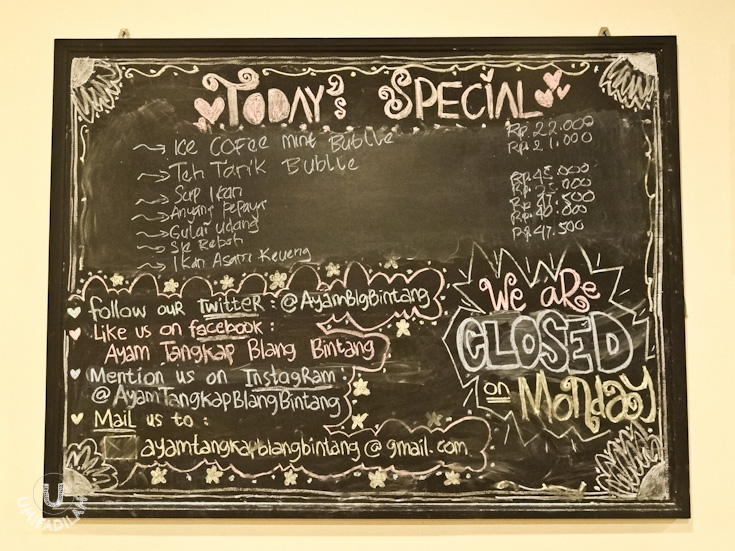 TODAY'S SPECIAL
Ice COFee Mint Bublle Rp 22.000
Teh Tarik Bublle Rp 21.000
Sup Ikan Rp 45.000
Anyang Pepaya
Gulai Udang 47.500
Sie Reboh Rp 40.000
Ikan Asam Keueng Rp 47.500
Follow our Twitter : @AyamBlgBintang
Like us on facebook :
Ayam Tangkap Blang Bintang
Mention us on Instagram :
@AyamTangkapBlangBintang
Mail us to :
ayamtangkapblangbintang@gmail.com
We are
CLOSED
on Monday
U
UMIFADILAH